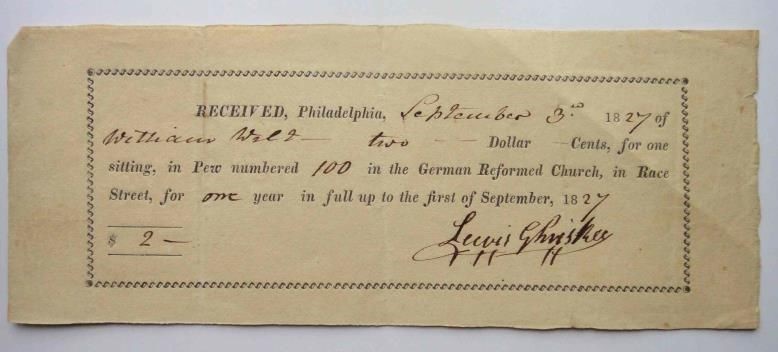 RECEIVED, Philadelphia, September 3rd 1827 of
William Wilt — two — Dollar — Cents, for one
sitting, in Pew numbered 100 in the German Reformed Church, in Race
Street, for one year in full up to the first of September, 1827
$ 2 — Lewis